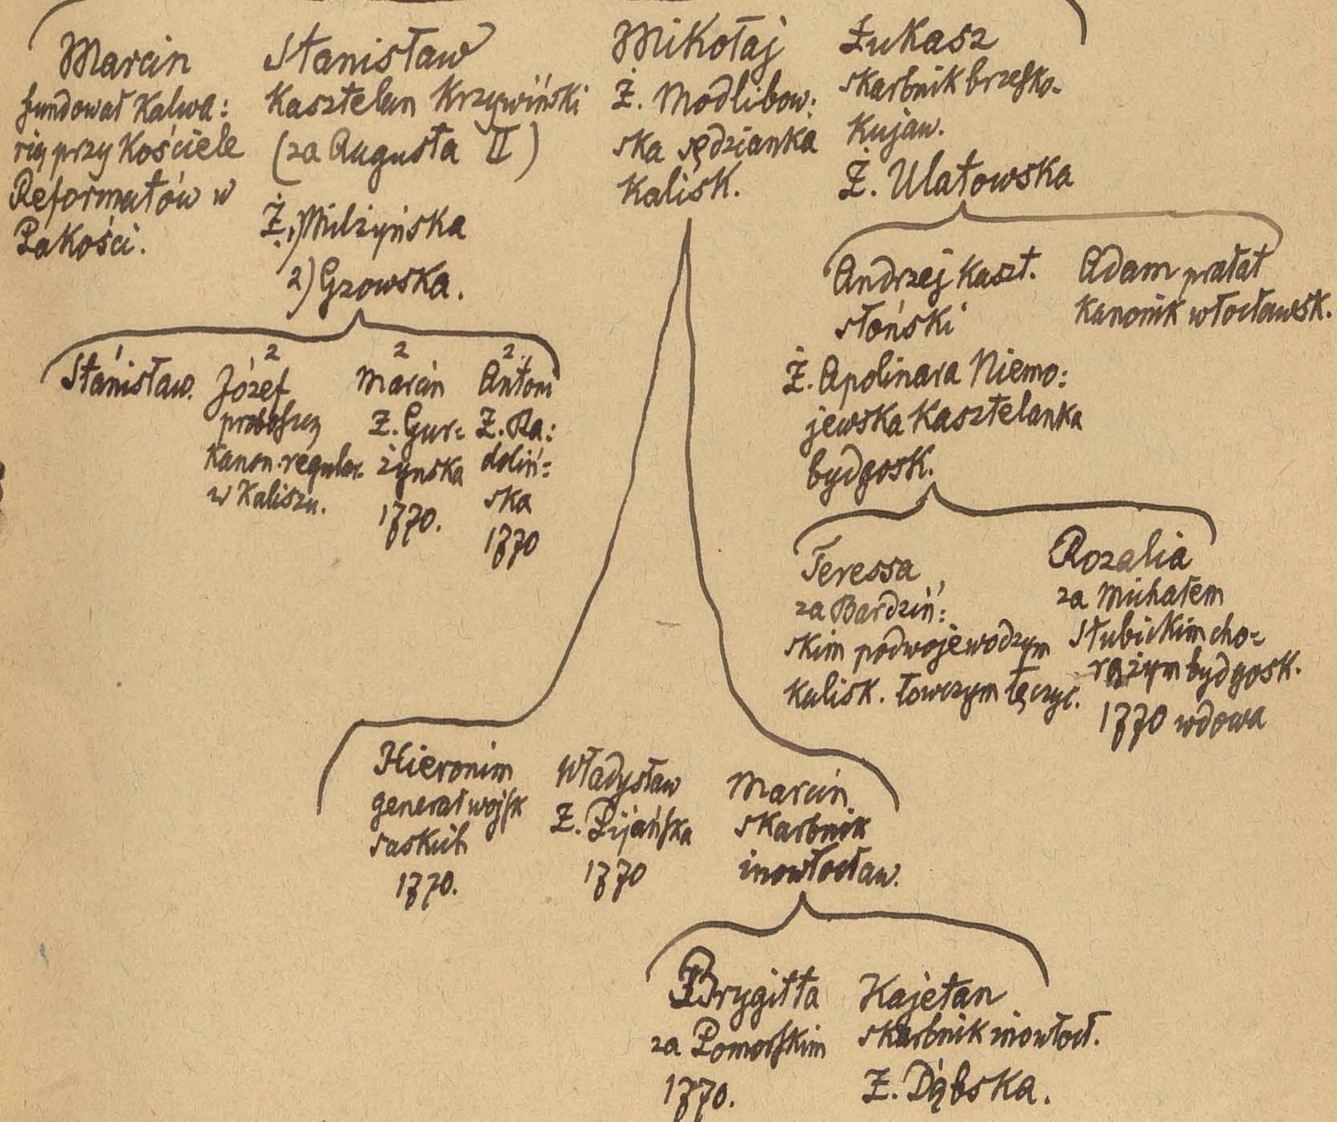 Marcin
fundował Kalwa:
rię przy Kościele
Reformatów w
Pakości.
Stanisław
Kasztelan Krzywiński
(za Augusta II)
Ż. 1) Milżyńska
2) Gzowska.
Mikołaj
Ż. Modlibow:
ska sędzianka
Kalisk.
Łukasz
skarbnik brzesko-
Kujaw.
Ż. Ulatowska
Stanisław.
2
Józef
proboszcz
Kanon. regular.
w Kaliszu.
2
Marcin
Ż. Gur:
żyńska
1770.
2
Antoni
Ż. Ra:
doliń:
ska
1770
Andrzej Kaszt.
słoński
Ż. Apolinara Niemo:
jewska Kasztelanka
bydgosk.
Adam prałat
Kanonik włocławsk.
Teressa
za Bardziń:
skim podwojewodzym
Kalisk. łowczym łęczyc.
Rozalia
za Michałem
Słubickim cho-
rążym bydgosk.
1770 wdowa
Hieronim
generał wojsk
saskich
1770.
Władysław
Ż. Pijańska
1770
Marcin
skarbnik
inowłocław.
Brygitta
za Pomorskim
1770.
Kajetan
skarbnik inowłocł.
Ż. Dąbska.